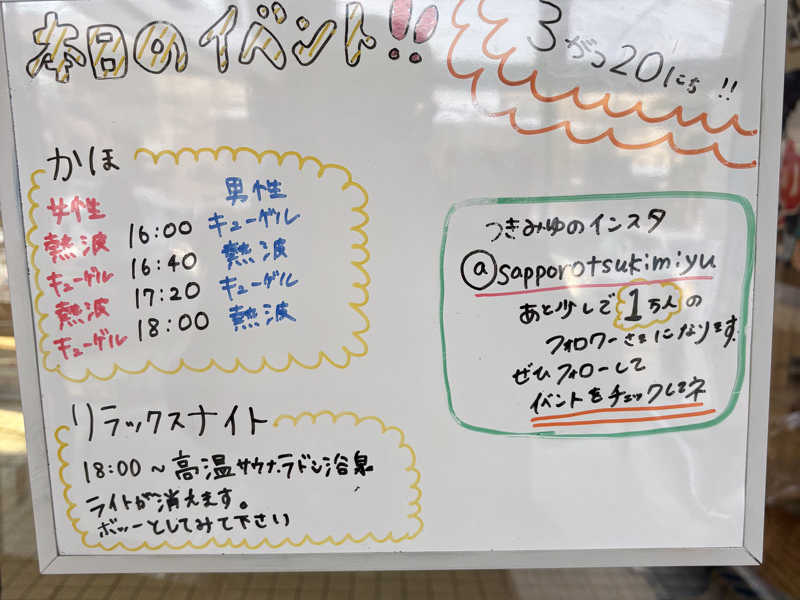 本日のイベント!!
3がつ20にち!!
かほ
女性 男性
熱波 16:00 キューゲル
キューゲル 16:40 熱波
熱波 17:20 キューゲル
キューゲル 18:00 熱波
リラックスナイト
18:00～高温サウナ・ラドン浴泉
ライトが消えます。
ボッーとしてみて下さい
つきみゆのインスタ
@sapporotsukimiyu
あと少しで1万人の
フォロワーさまになります。
ぜひフォローして
イベントをチェックしてネ